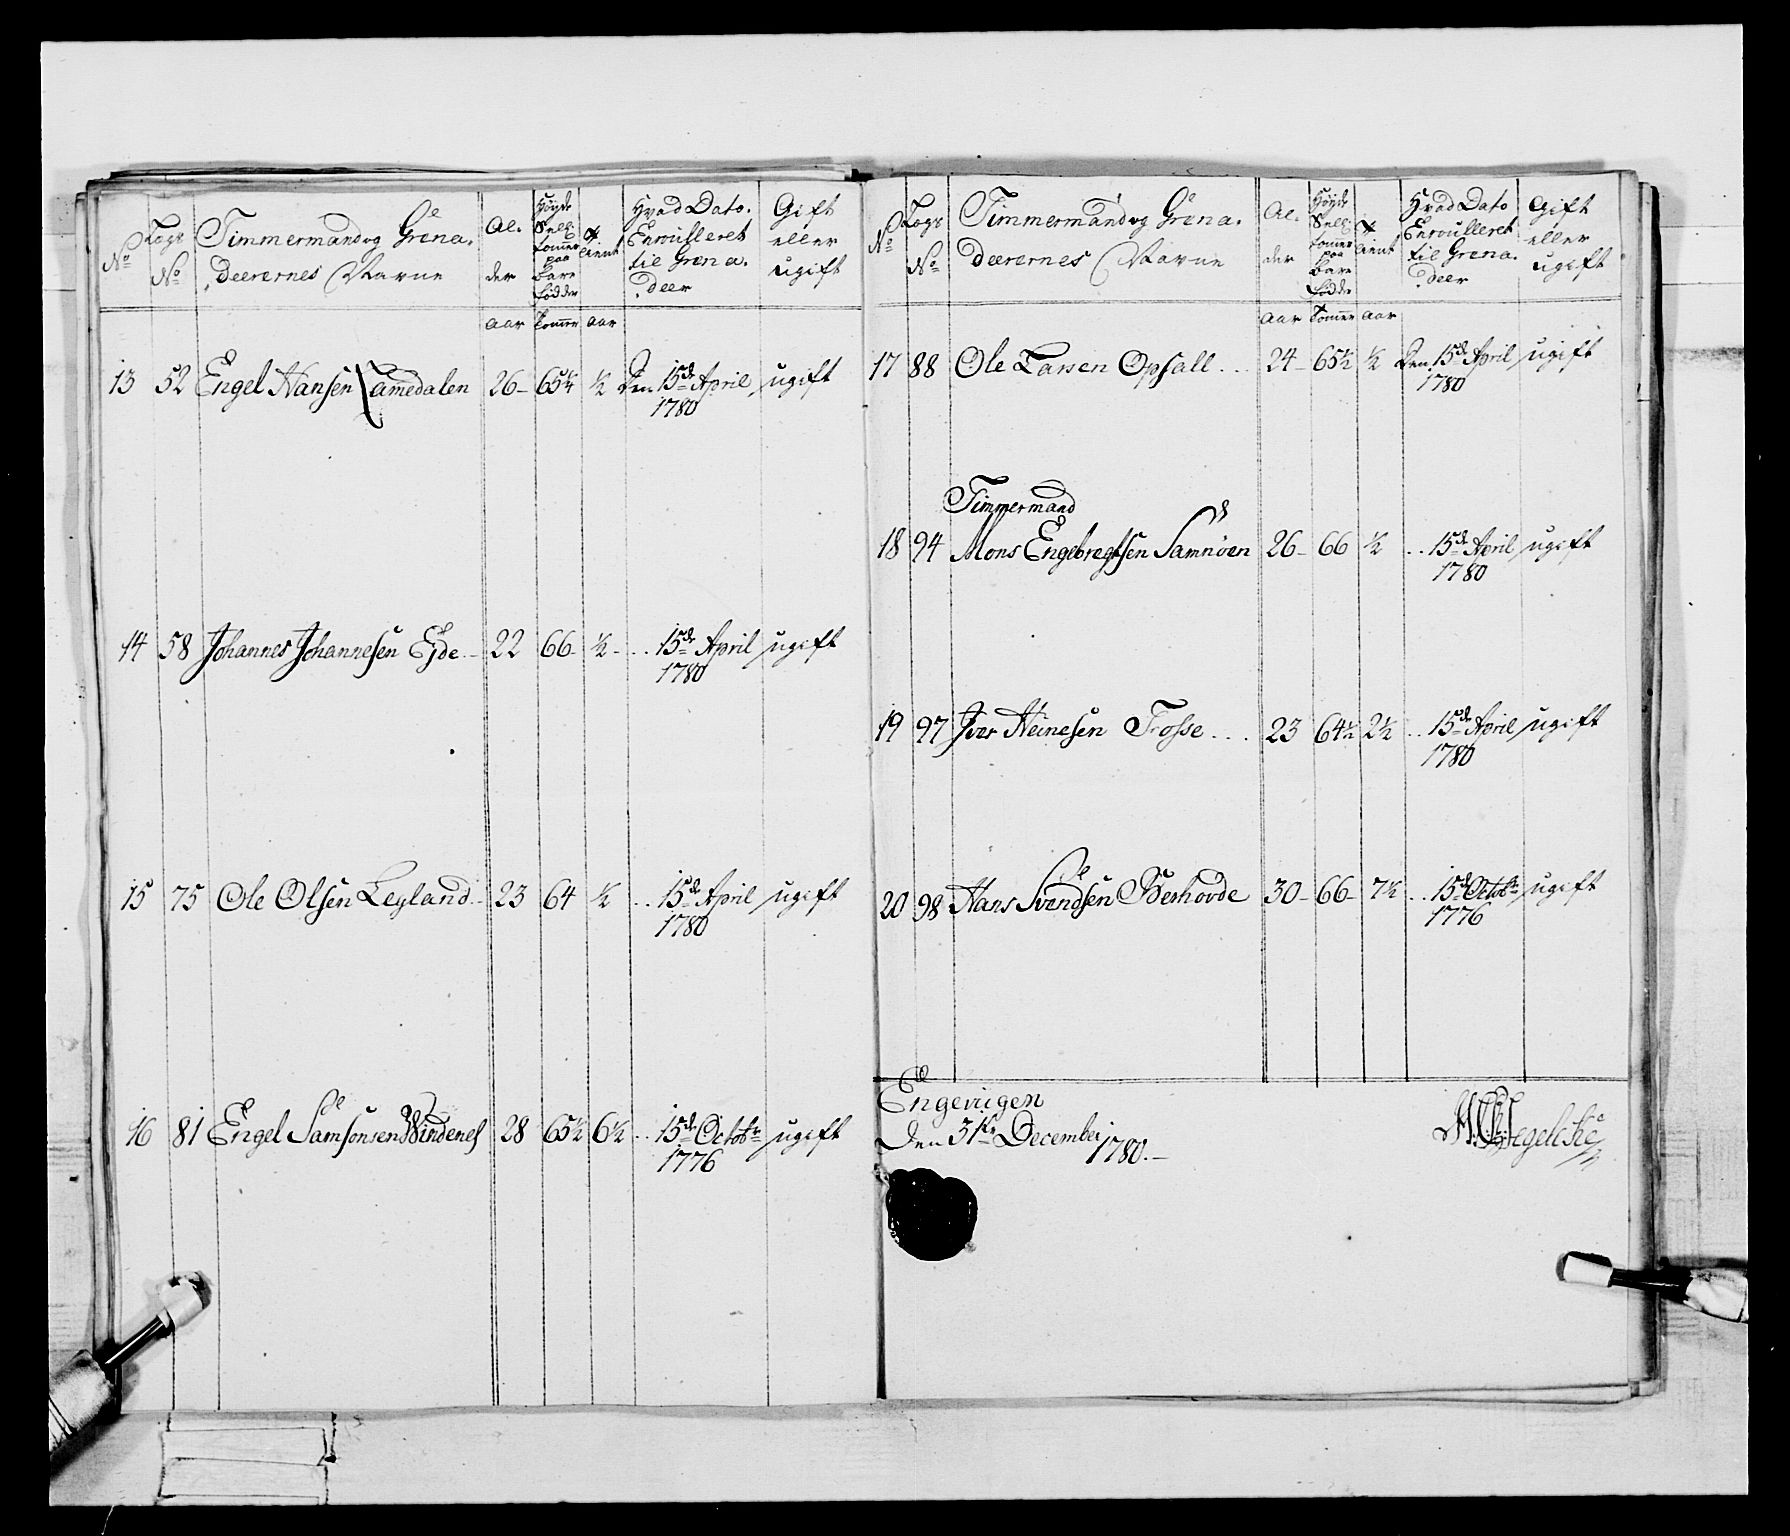 No Lægs No Timmermand og Grena, deerernes Navne Al. der Høyde Sell: tommer paa Bare fødder Tient Hvad Dato. Enroulleret til Grena, deer Gift eller ugift
Aar Tommer Aar
13 52 Engel Hansen Lamedalen 26 65¼ ½ Den 15de April 1780 ugift
14 58 Johannes Johannesen Ejde 22 66 ½ .. 15de April 1780 ugift
15 75 Ole Olsen Leyland 23 64 ½ .. 15de April 1780 ugift
16 81 Engel Samsonsen Windenes 28 65½ 6½ .. 15de Octobr 1776 ugift
No Lægs No Timmermand og Grena. deerernes Navne Al. der Høyde Sell: tommer paa Bare fødder Tient Hvad Dato Enroulleret til Grena. deer Gift eller ugift
Aar Tommer Aar
17 88 Ole Larsen Opsall ... 24 65½ ½ Den 15de April 1780 ugift
Timmermand
18 94 Mons Engebregtsen Samnøen 26 66 ½ .. 15de April 1780 ugift
19 97 Iver Heinesen Trosse ... 23 64½ 2½ .. 15de April 1780 ugift
20 98 Hans Svendsen Berhovde 30 66 7½ .. 15de Octobr 1776 ugift
Engevigen
Den 31te December 1780.